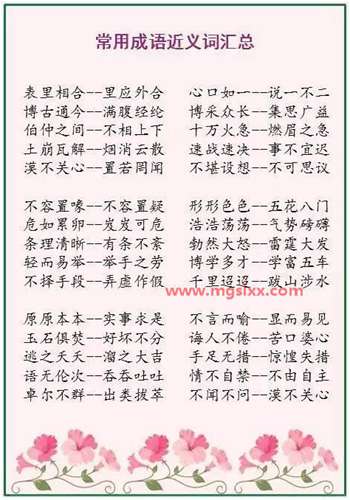 常用成语近义词汇总
表里相合--里应外合 心口如一--说一不二
博古通今--满腹经纶 博采众长--集思广益
伯仲之间--不相上下 十万火急--燃眉之急
土崩瓦解--烟消云散 速战速决--事不宜迟
漠不关心--置若罔闻 不堪设想--不可思议
不容置喙--不容置疑 形形色色--五花八门
危如累卵--岌岌可危 浩浩荡荡--气势磅礴
条理清晰--有条不紊 勃然大怒--雷霆大发
轻而易举--举手之劳 博学多才--学富五车
不择手段--弄虚作假 千里迢迢--跋山涉水
www.mgsixx.com
原原本本--实事求是 不言而喻--显而易见
玉石俱焚--好坏不分 诲人不倦--苦口婆心
逃之夭夭--溜之大吉 手足无措--惊惶失措
语无伦次--吞吞吐吐 情不自禁--不由自主
卓尔不群--出类拔萃 不闻不问--漠不关心